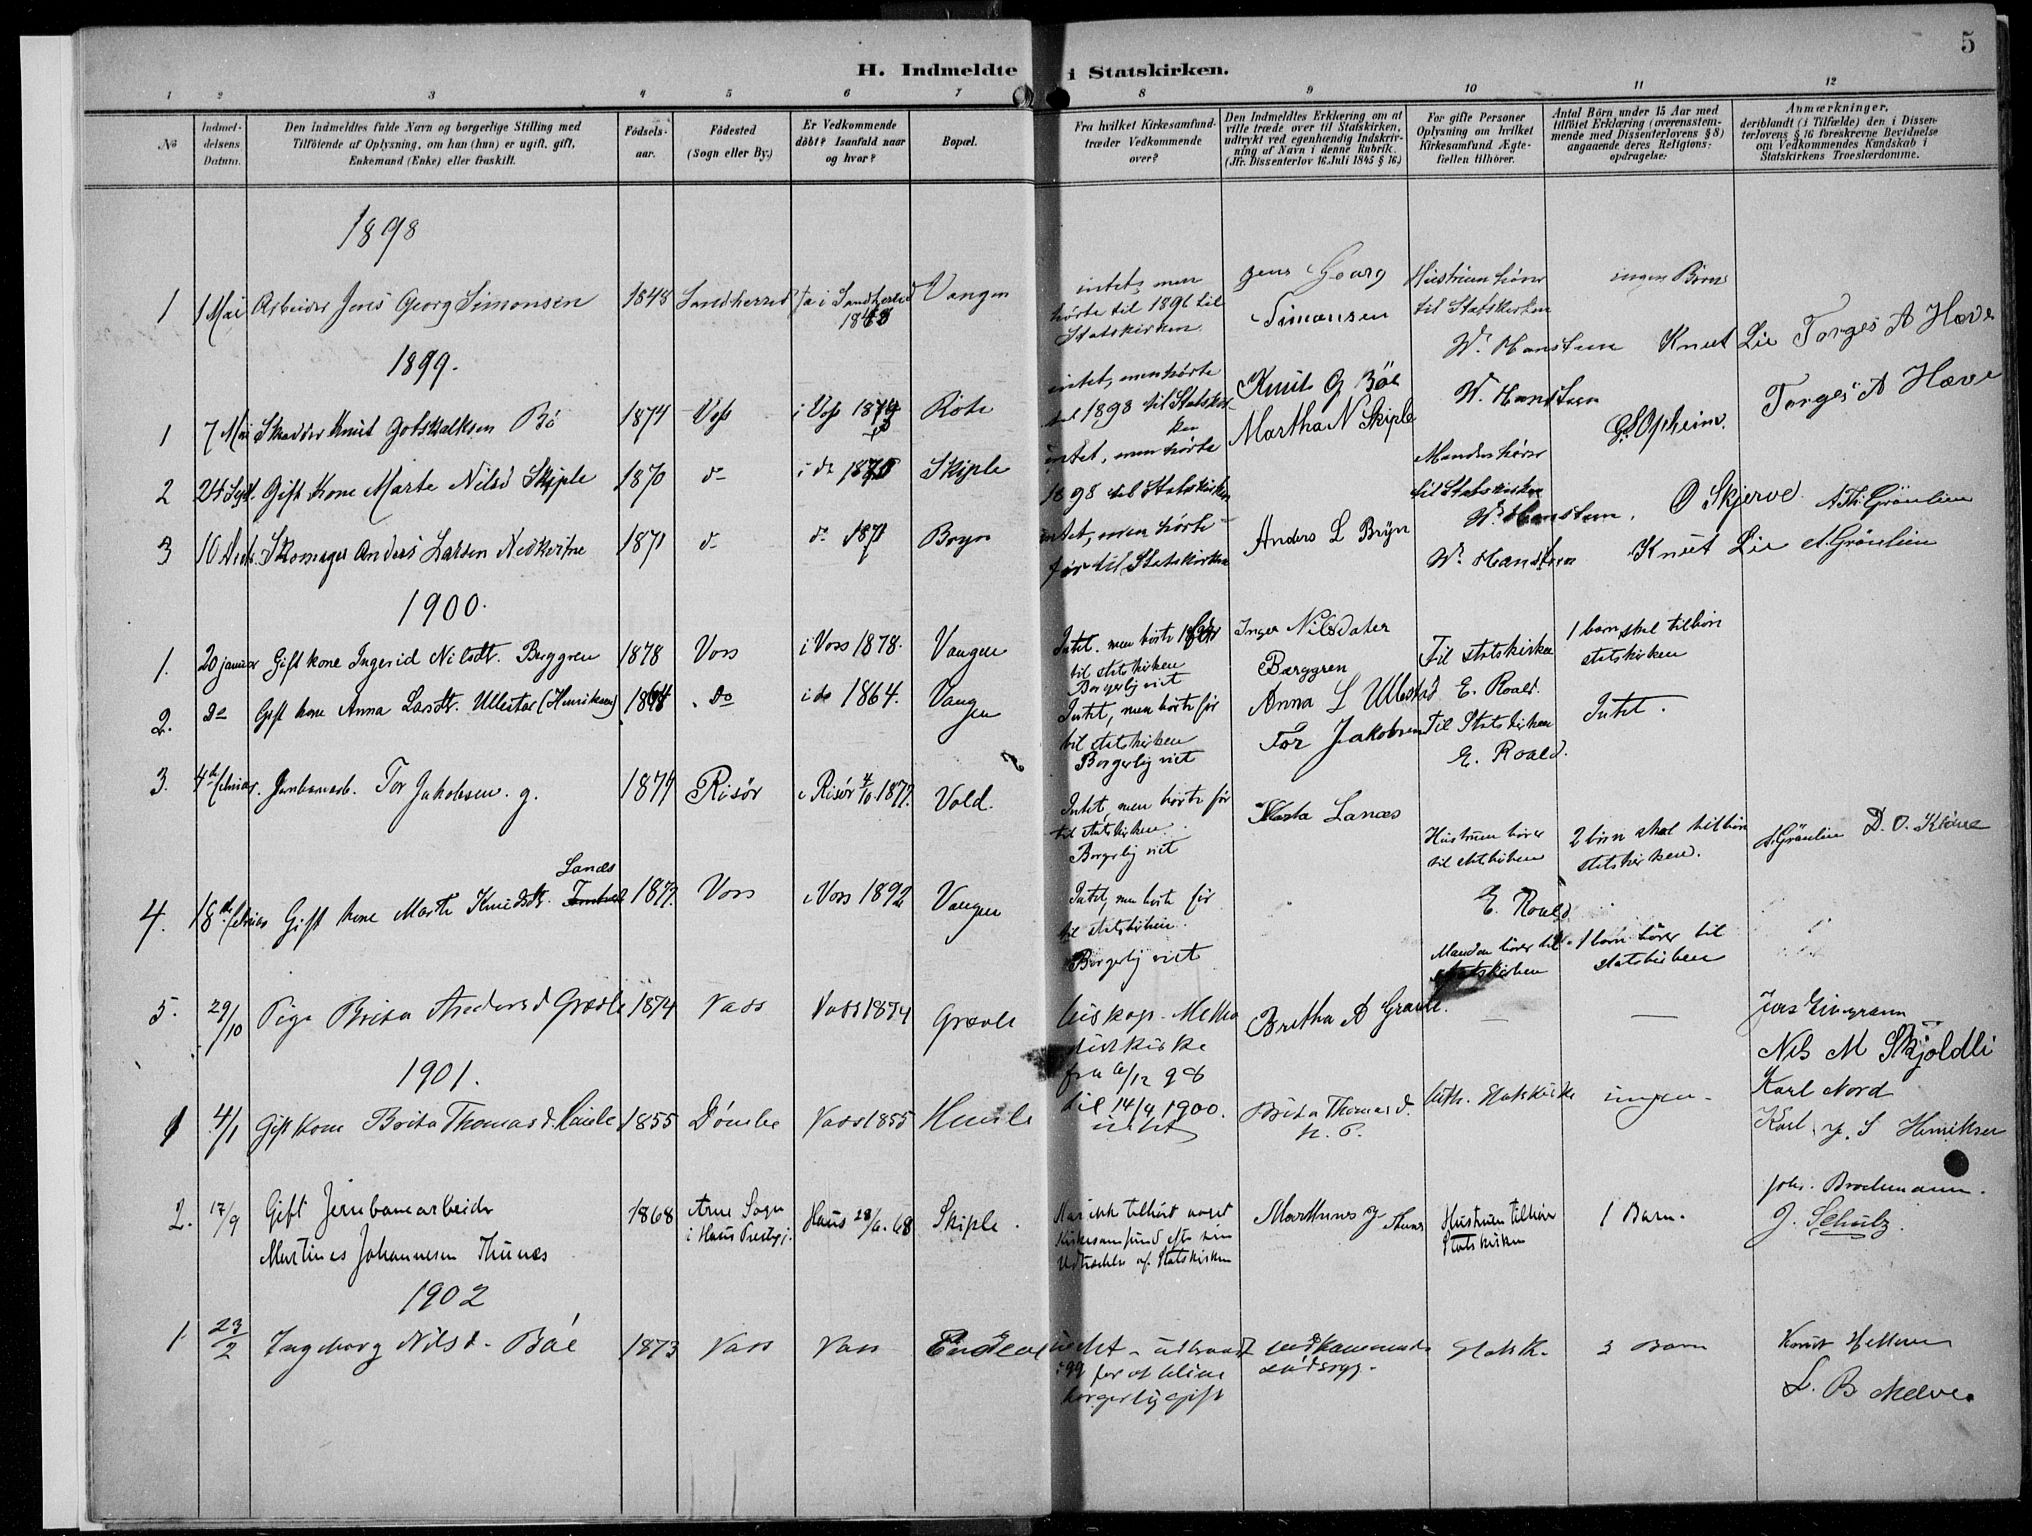 5
H. Indmeldte i Statskirken.
1 2 3 4 5 6 7 8 9 10 11 12
No
Indmel-
delsens
Datum.
Den Indmeldtes fulde Navn og borgerlige Stilling med
Tilföiende af Oplysning, om han (hun) er ugift, gift,
Enkemand (Enke) eller fraskilt.
Födsels-
aar.
Födested
(Sogn eller By.)
Er Vedkommende
döbt? Isaafald naar
og hvor?
Bopæl.
Fra hvilket Kirkesamfund
træder Vedkommende
over?
Den Indmeldtes Erklæring om at
ville træde over til Statskirken,
udtrykt ved egenhændig Indskriv-
ning af Navn i denne Rubrik.
(Jfr. Dissenterlov 16. Juli 1845 § 16.)
For gifte Personer
Oplysning om hvilket
Kirkesamfund Ægte-
fællen tilhører.
Antal Börn under 15 Aar med
tilföiet Erklæring (overensstem-
mende med Dissenterlovens § 8)
angaaende deres Religions-
opdragelse:
Anmærkninger,
deriblandt (i Tilfælde) den i Dissen-
terlovens § 16 foreskrevne Bevidnelse
om Vedkommendes Kundskab i
Statskirkens Troeslærdomme.
1898
1 1 Mai Arbeider Jens Georg Simonsen 1848 Sandherred Ja i Sandherred Vangen
1848
intet, men
hørte til 1896 til
Statskirken
Jens Georg
Simonsen
Hustruen hører
til Statskirken
W. Hansteen
ingen Børn
Knut Lie Torgeis A Hæve
1899.
1 7 Mai Skrædder Knut Gotskalksen Bö 1874 Voss i Voss 1874 Rote
intet, men hørte
til 1898 til Statskir-
ken
Knut G Böe
W. Hansteen
G.S Opheim.
Torgeis A Hæve
2 24 Sept. Gift Kone Marte Nilsd Skiple 1870 do i do 1870 Skiple
intet, men hørte
1898 til Statskirken
Martha N Skiple
Manden hører
til Statskirken
W. Hansteen.
O Skjerve. A Th: Grönlien
3 10 Skomager Anders Larsen 1871 do do 1871 Bryn
intet, men hørte
før til Statskirken
Anders L Bryn
W. Hansteen
Knut Lie A Grönlien
1900.
1. 20 januar Gift kone Ingerid Nilsdt. Berggren 1878 Voss i Voss 1878. Vangen
Intet, men hørte før
til statskirken
Borgerlig viet
Inger Nilsdater
Berggren
Til statskirken
E. Roald.
1 barn skal tilhøre
statskirken
2. Do Gift kone Anna Larsdt. Ullestad (Henriksen) 1864 Do i do 1864. Vangen
Intet, men hørte før
til statskirken
Borgerlig viet
Anna L Ullestad
Til Statskirken
E. Roald.
Intet.
3. 4de februar. Jernbanearb. Tor Jakobsen. g. 1877 Risör i Risör 4/10 1877. Vold.
Intet, men hørte før
til statskirken.
Borgerlig viet
Tor Jakobsen
Hustruen hører
til statskirken
E. Roald
2 børn skal tilhøre
statskirken.
A Grönlien D. O. Klöve
4. 18de februar Gift kone Marta Knudsdt. Lanæs 1873 Voss i Voss 1892 Vangen
Intet, men hørte før
til statskirken.
Borgerlig viet
Marta Lanæs
Manden hører til
statskirken
1 barn hører til
statskirken
5. 29/10 Pige Brita Andersd Grævle 1874 Voss Voss 1874 Grævle
biskop. Metho
distkirke
fra 6/12 98
til 14/9 1900.
Bretha A Gravle.
—
—
Jens Gimgrann
Nils M Skjoldli
1901.
1 4/1 Gift Kone Brita Thomasd. 1855 Dömbe Voss 1855
intet
Brita Thomasd.
m. P.
luth. Statskirke
ingen -
Karl Nord
Karl J. S Henriksen
2. 17/9 Gift Jernbanearbeider
Martines Johannesen Thunæs
1868 Arne Sogn
i Haus Prestegj.
Haus 28/6. 68 Skiple.
Har ikk tilhørt noget
Kirkesamfund efter sin
Udtrædelse af Statskirken
Marthines J Thunæs
Hustruen tilhører
Statskirken
1 Barn.
Johs. Brochmann.
J. Schulz.
1902
1. 23/2 Ingeborg Nilsd. Böe 1873 Voss Voss
intet - udtraadt
99 for at blive
borgerlig gift
vedkommende
sindssyg.
Statsk.
3 Barn
Knut
L. B Melve.